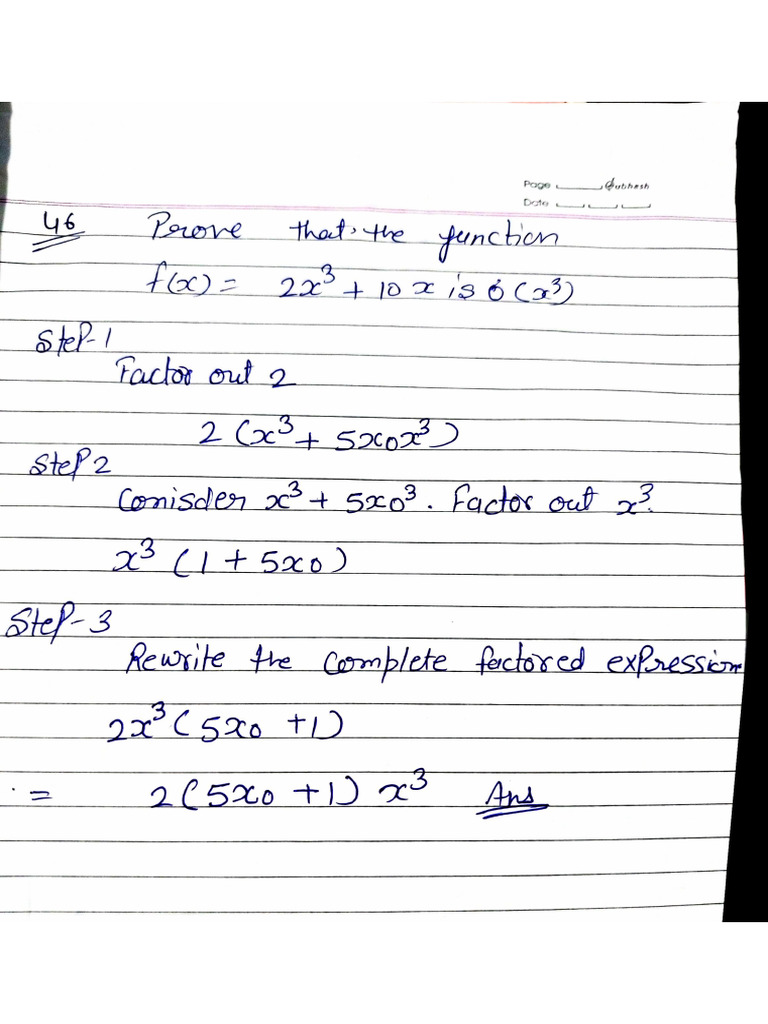 Page Subhash
Date
46 Prove that the function
f(x) = 2x³ + 10x is ó(x³)
Step-1
Factor out 2
2(x³ + 5x0x³)
Step 2
Conisder x³ + 5x0³. Factor out x³.
x³ (1 + 5x0)
Step-3
Rewrite the complete factored expression
2x³ (5x0 + 1)
= 2(5x0 + 1) x³ Ans